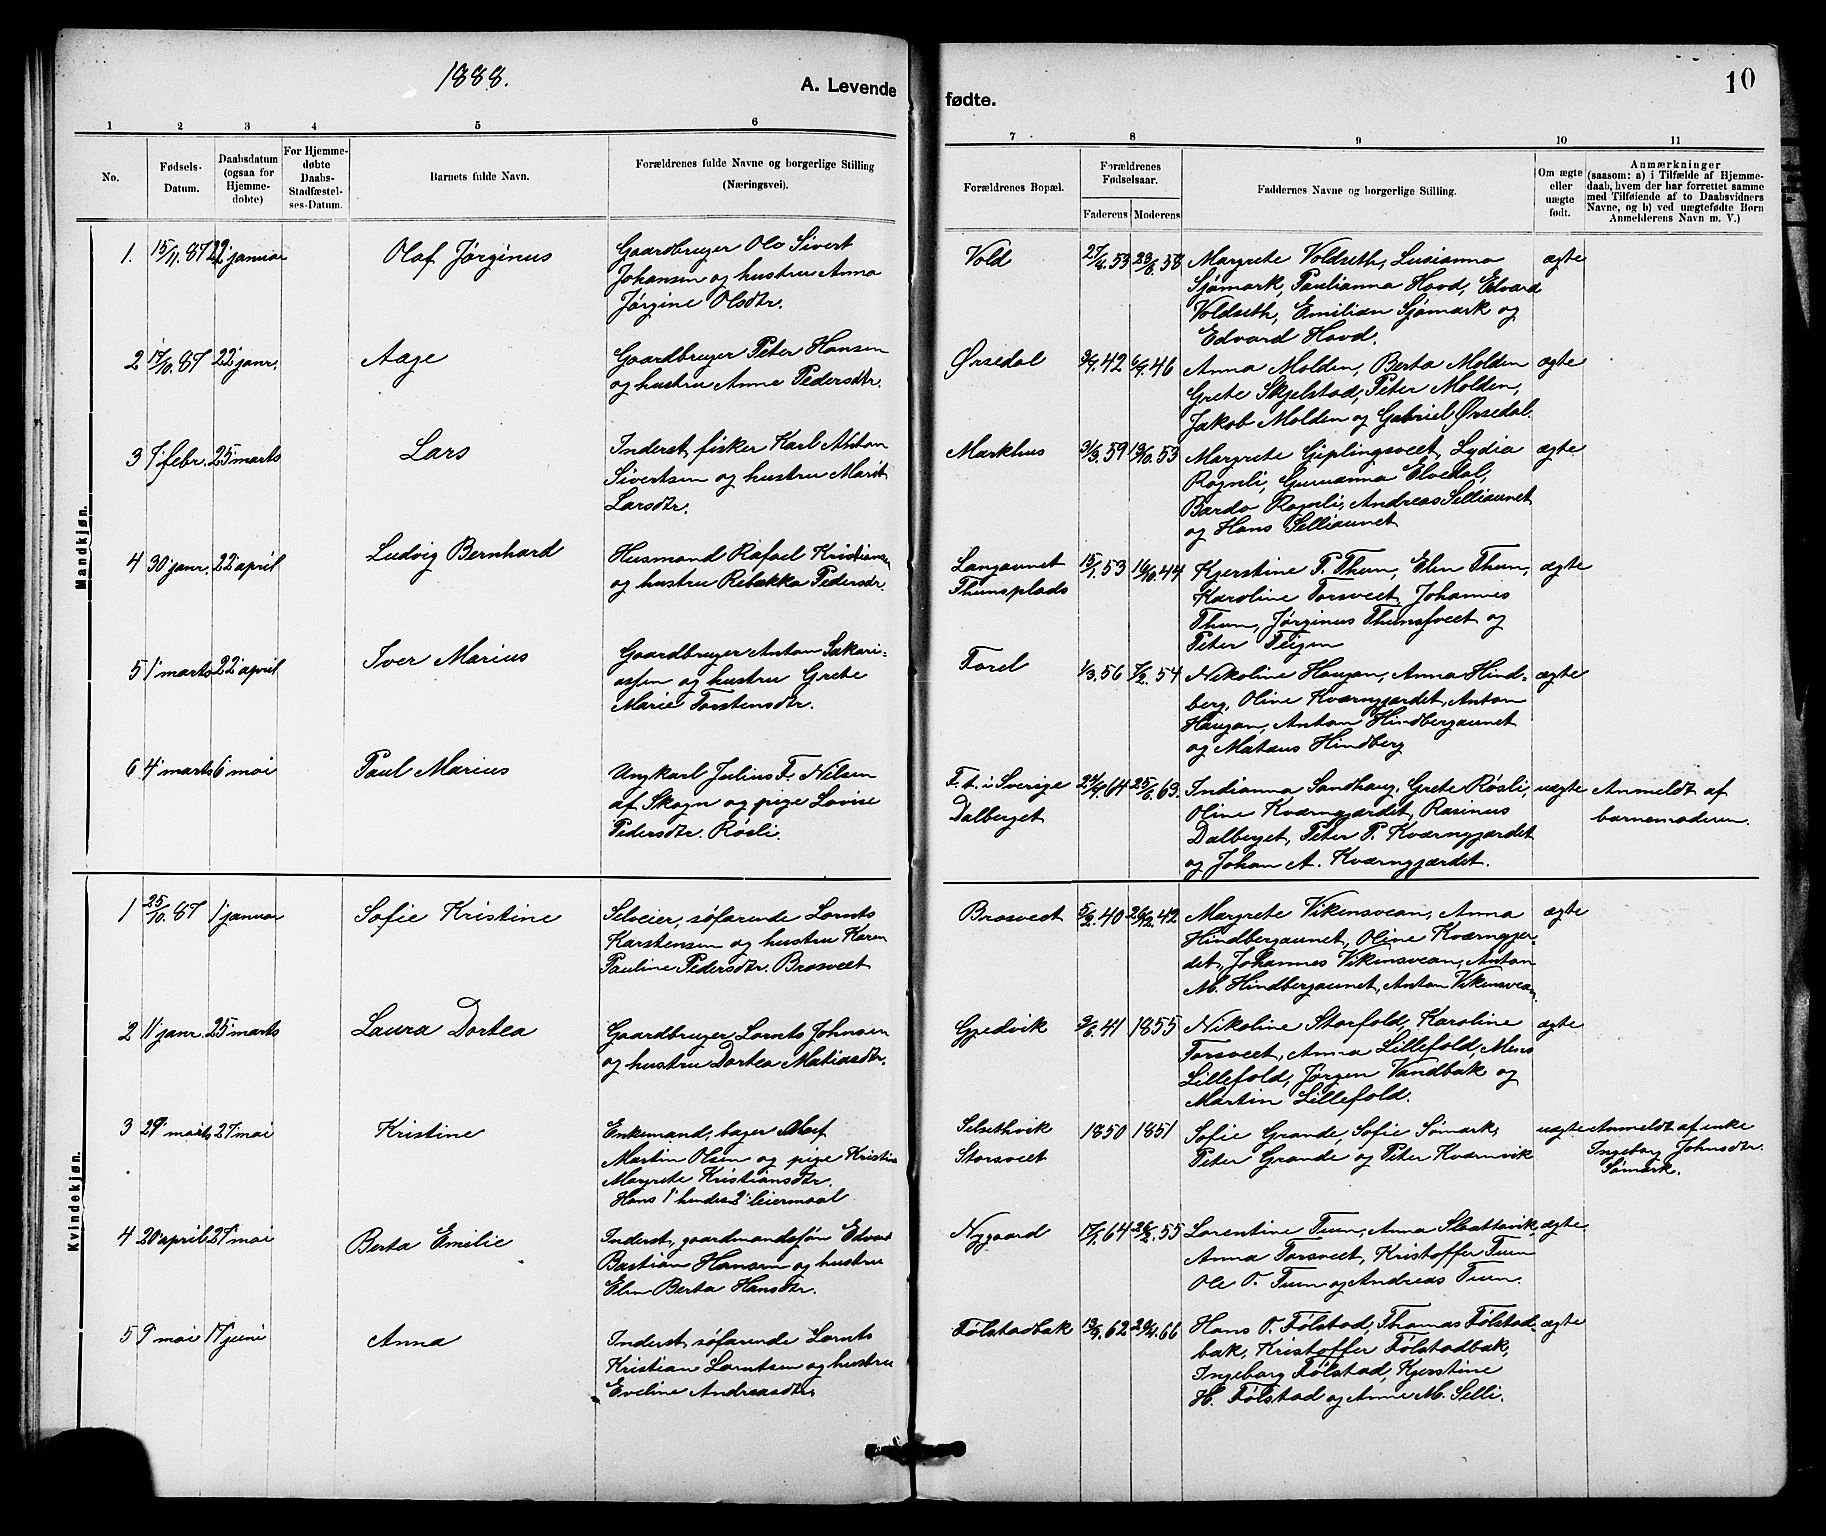 1888.
A. Levende
fødte.
10
1 2 3 4 5 6 7 8 9 10 11
No.
Fødsels-
Datum.
Daabsdatum
(ogsaa for
Hjemme-
døbte)
For Hjemme-
døbte
Daabs-
Stadfæstel-
ses-Datum.
Barnets fulde Navn.
Forældrenes fulde Navne og borgerlige Stilling
(Næringsvei).
Forældrenes Bopæl.
Forældrenes
Fødselsaar.
Faderens Moderens
Faddernes Navne og borgerlige Stilling.
Om ægte
eller
uægte
født.
Anmærkninger
(saasom: a) i Tilfælde af Hjemme-
daab, hvem der har forrettet samme
med Tilføiende af to Daabsvidners
Navne, og b) ved uægtefødte Børn
Anmelderens Navn m. V.)
Mandkjøn.
1. 15/11.87 januar
Olaf Jørginus
Gaardbruger Ole Sivert
Johansen og hustru Anna
Jørgine Olsdtr.
Vold
27/4.53 23/8.58
Margrete Voldseth, Lusianna
Sjømark, Paulianna Hovd, Edvard
Voldseth, Emilian Sjømark og
Edvard Hovd.
ægte
2 17/10.87 22' janr.
Aage
Gaardbruger Peter Hansen
og hustru Anne Pedersdtr.
Ørsedal
9/9.42 6/9.46
Anna Molden, Berta Molden
Grete Skjelstad, Peter Molden,
Jakob Molden og Gabriel Ørsedal.
ægte
3 1' febr. 25' marts
Lars
Inderst, fisker Karl Anton
Sivertsen og hustru Marit
Larsdtr.
Markhus
3/3.59 13/10.53
Margrete Giplingsveet, Lydia
Rognli, Guruanna Elvedal,
Bardo Rognli, Andreas Selliaunet
og Hans Selliaunet
ægte
4 30' janr. 22' april
Ludvig Bernhard
Husmand Rafael Kristiansen
og hustru Rebekka Pedersdtr.
Langaunet
Thunsplads
15/1.53 16/10.44
Kjerstine P. Thun, Elen Thun,
Karoline Torsveet, Johannes
Thun, Jørginus Thunsveet og
Peter Teigen
ægte
5 1' marts 22' april
Iver Marius
Gaardbruger Anton Sakari-
assen og hustru Grete
Marie Torstensdtr.
Forel
1/3.56 7/2.54
Nikoline Haugan, Anna Hind-
berg, Oline Kværngjærdet, Anton
Haugan, Anton Hindbergaunet
og Mataus Hindberg
ægte
6 4' marts 6' mai
Paul Marius
Ungkarl Julius F. Nilsen
af Skogn og pige Lovise
Pedersdtr. Røsli.
F. t. i Sverige
Dalberget
24/4.64 25/6.63.
Indianna Sandhaug, Grete Røsli,
Oline Kværngjærdet, Rasinus
Dalberget, Peter P. Kværngjærdet
og Johan A. Kværngjærdet.
uægte
Anmeldt af
barnemoderen.
Kvindekjøn.
1 25/10.87 1' januar
Sofie Kristine
Selveier, søfarende Lornts
Karstensen og hustru Karen
Pauline Pedersdtr. Brosveet
Brosveet
5/2.40 26/12.42
Margrete Vikensvean, Anna
Hindbergaunet, Oline Kværngjær-
det, Johannes Vikensvean, Anton
M. Hindbergaunet, Anton Vikensvean.
ægte
2 11' janr. 25' marts
Laura Dortea
Gaardbruger Lornts Johnsen
og hustru Dortea Matiasdtr.
Gjedvik
9/6.41 1855
Nikoline Storfold, Karoline
Torsveet, Anna Lillefold, Mens
Lillefold, Jørgen Vandbak og
Martin Lillefold.
ægte
3 29' marts 27' mai
Kristine
Enkemand, bager Olaf
Martin Olsen og pige Kristine
Margrete Kristiansdtr.
Hans 1' hendes 2' leiermaal
Selsethvik
Storsveet
1850 1851
Sofie Grande, Sofie Sømark,
Peter Grande og Peter Kværnvik
uægte
Anmeldt af enke
Ingeborg Johnsdtr.
Sømark.
4 20' april 27' mai
Berta Emilie
Inderst, gaardmandssøn Edvard
Bastian Hansen og hustru
Elen Berta Hansdtr.
Nygaard
17/1.64 26/2.55
Lorentine Tuun, Anna Slaattavik,
Anna Torsveet, Kristoffer Tuun
Ole O. Tuun og Andreas Tuun.
ægte
5 9' mai 17' juni
Anna
Inderst, søfarende Lornts
Kristian Lorntsen og hustru
Eveline Andreasdtr.
Følstadbak
13/9.62 29/4.66
Hans O. Følstad, Thomas Følstad-
bak, Kristoffer Følstadbak,
Ingeborg Følstad, Kjerstine
H. Følstad og Anne M. Selli.
ægte